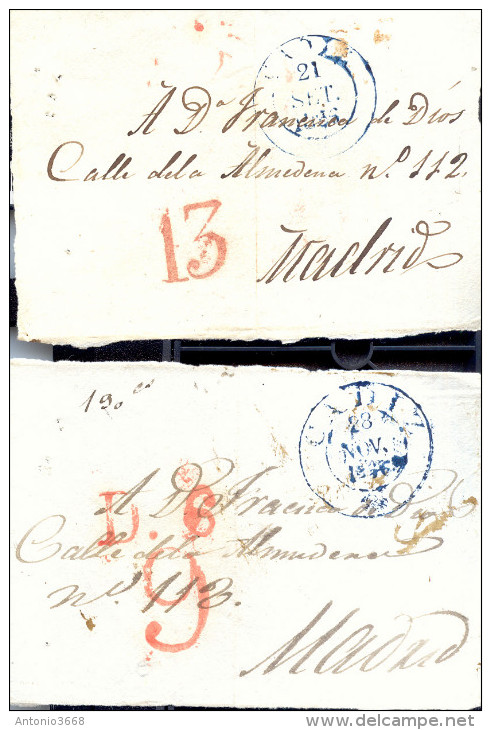 CADIZ
21
SET.
A Dª Francisca de Dios
Calle dela Almedena nº 112.
13
Madrid
190
CADIZ
28
NOV.
1846
D. 6
A Dª Fracica de Dios
Calle dela Almudena
nº 113.
9
Madrid
Antonio3668
www.delcampe.net